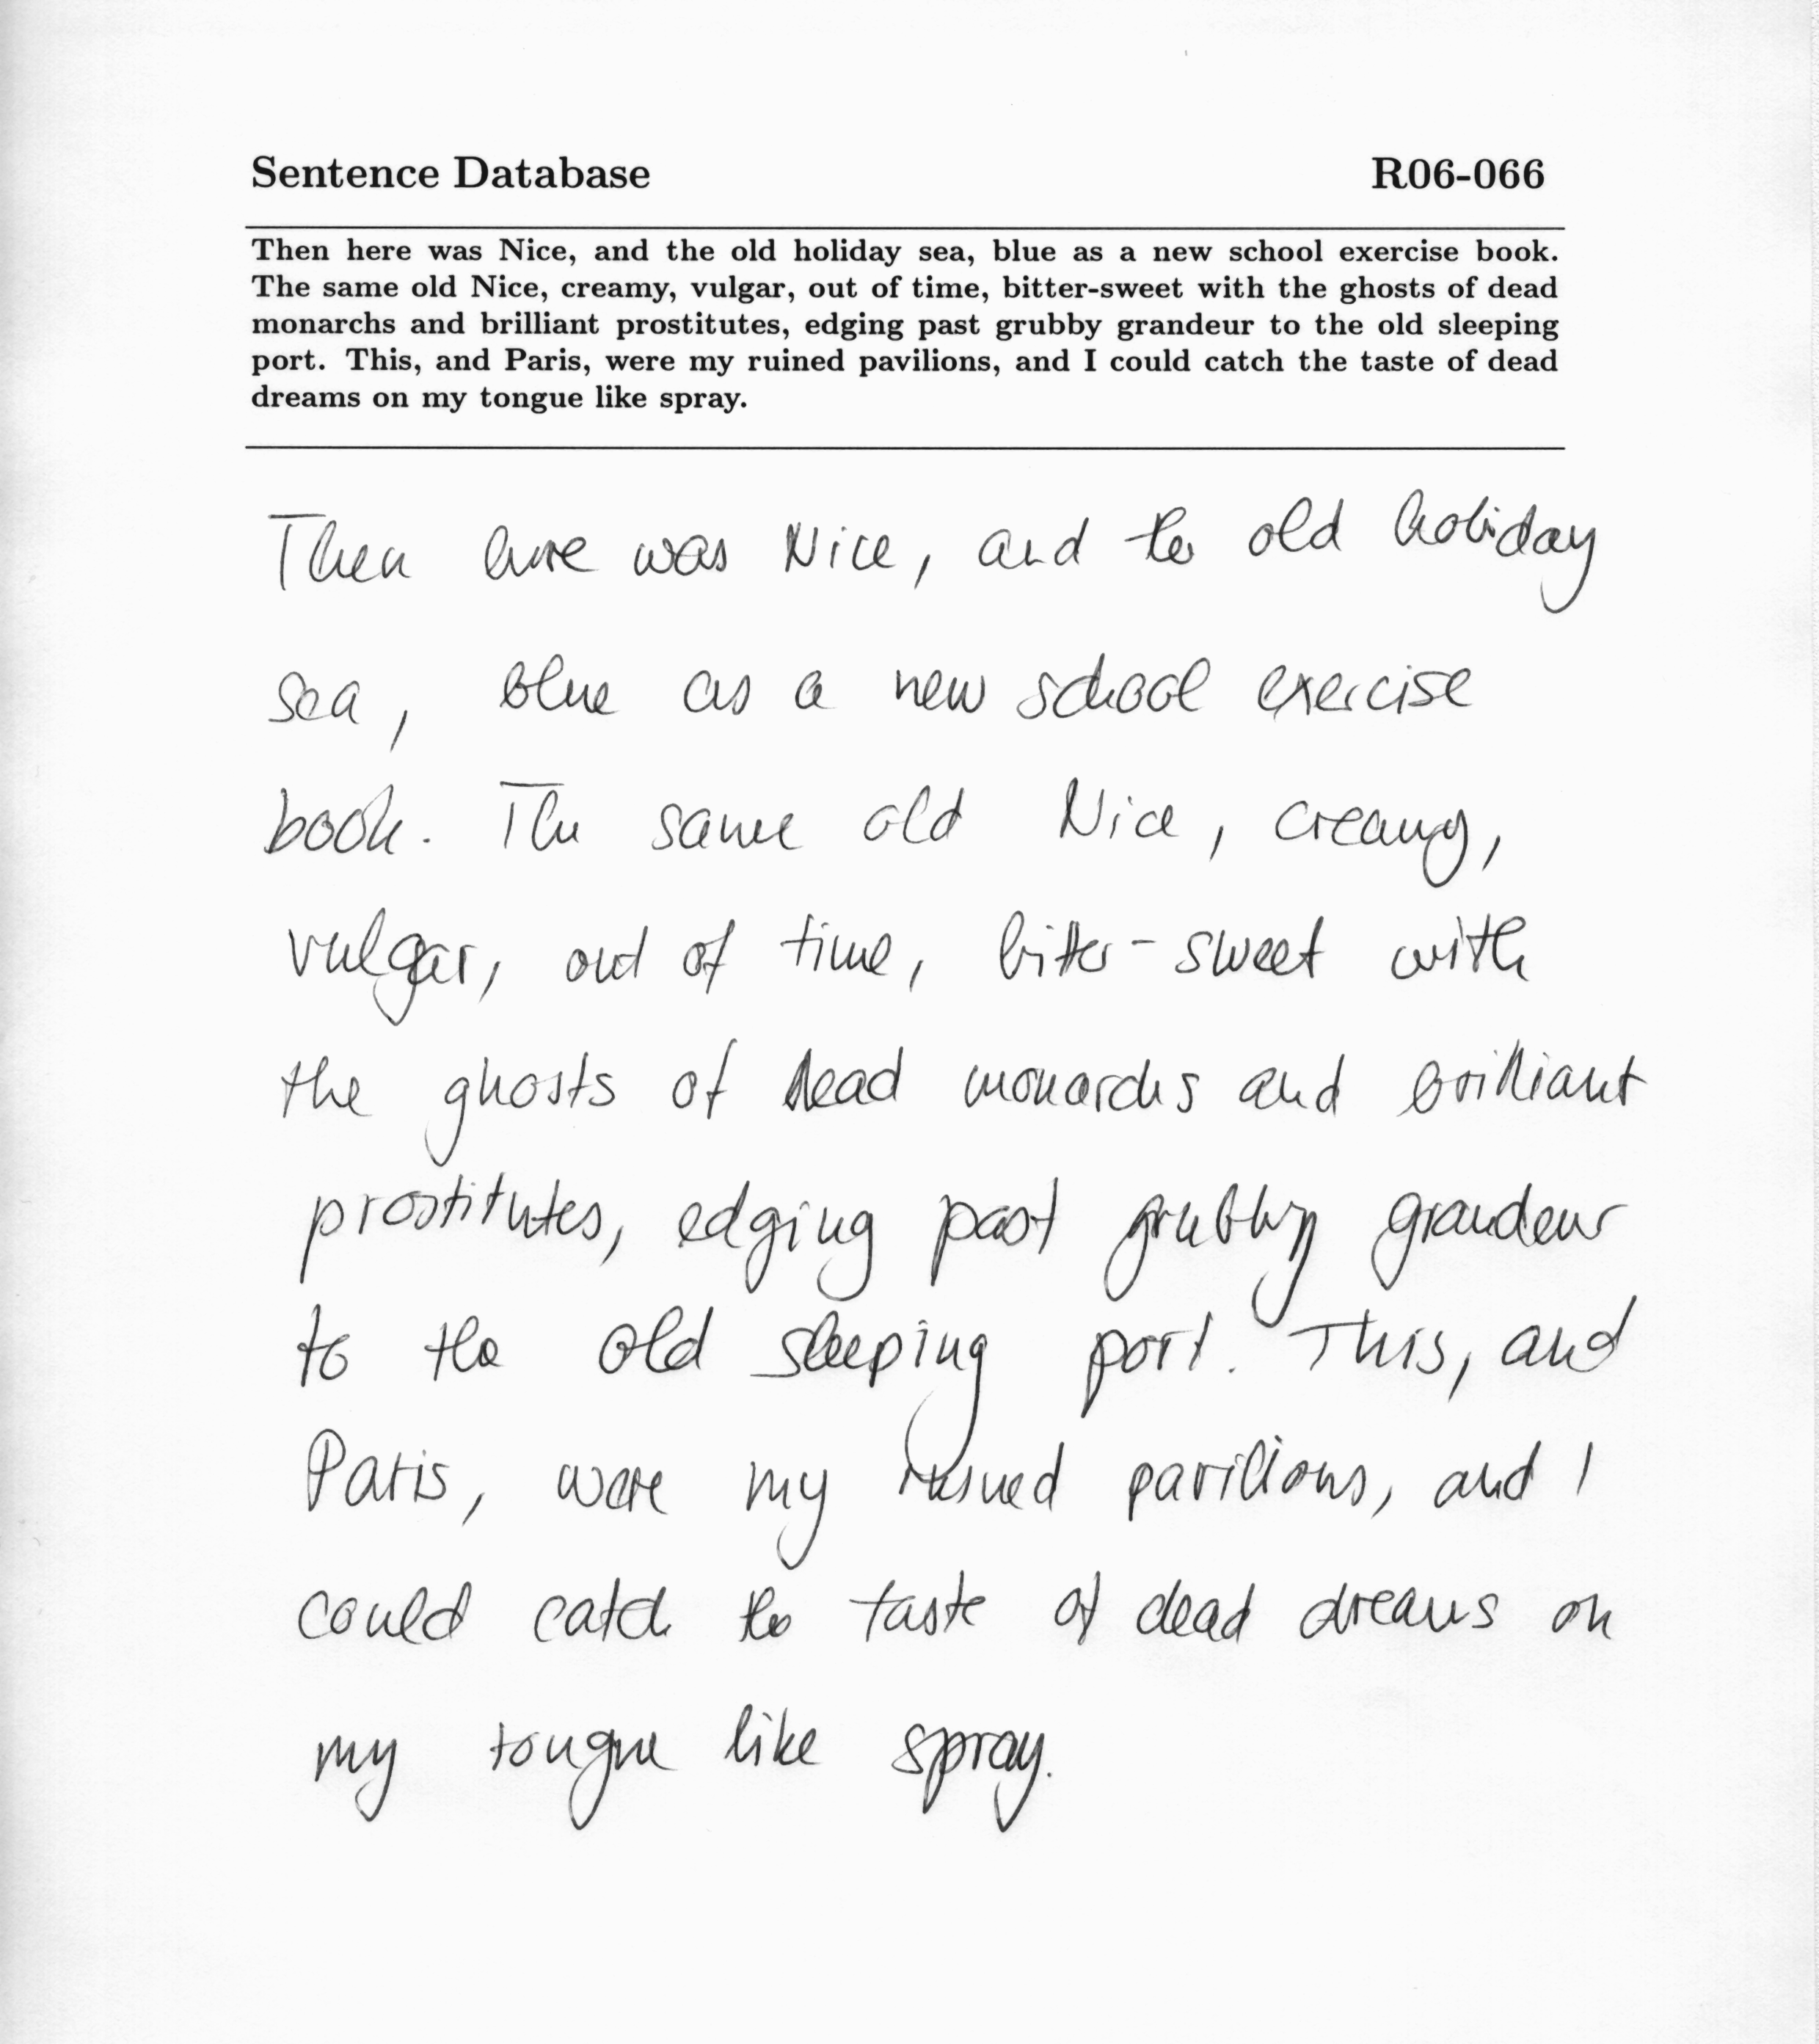 Sentence Database R06-066
Then here was Nice, and the old holiday sea, blue as a new school exercise book.
The same old Nice, creamy, vulgar, out of time, bitter-sweet with the ghosts of dead
monarchs and brilliant prostitutes, edging past grubby grandeur to the old sleeping
port. This, and Paris, were my ruined pavilions, and I could catch the taste of dead
dreams on my tongue like spray.
Then here was Nice, and the old holiday
sea, blue as a new school exercise
book. The same old Nice, creamy,
vulgar, out of time, bitter-sweet with
the ghosts of dead monarchs and brilliant
prostitutes, edging past grubby grandeur
to the old sleeping port. This, and
Paris, were my ruined pavilions, and I
could catch the taste of dead dreams on
my tongue like spray.